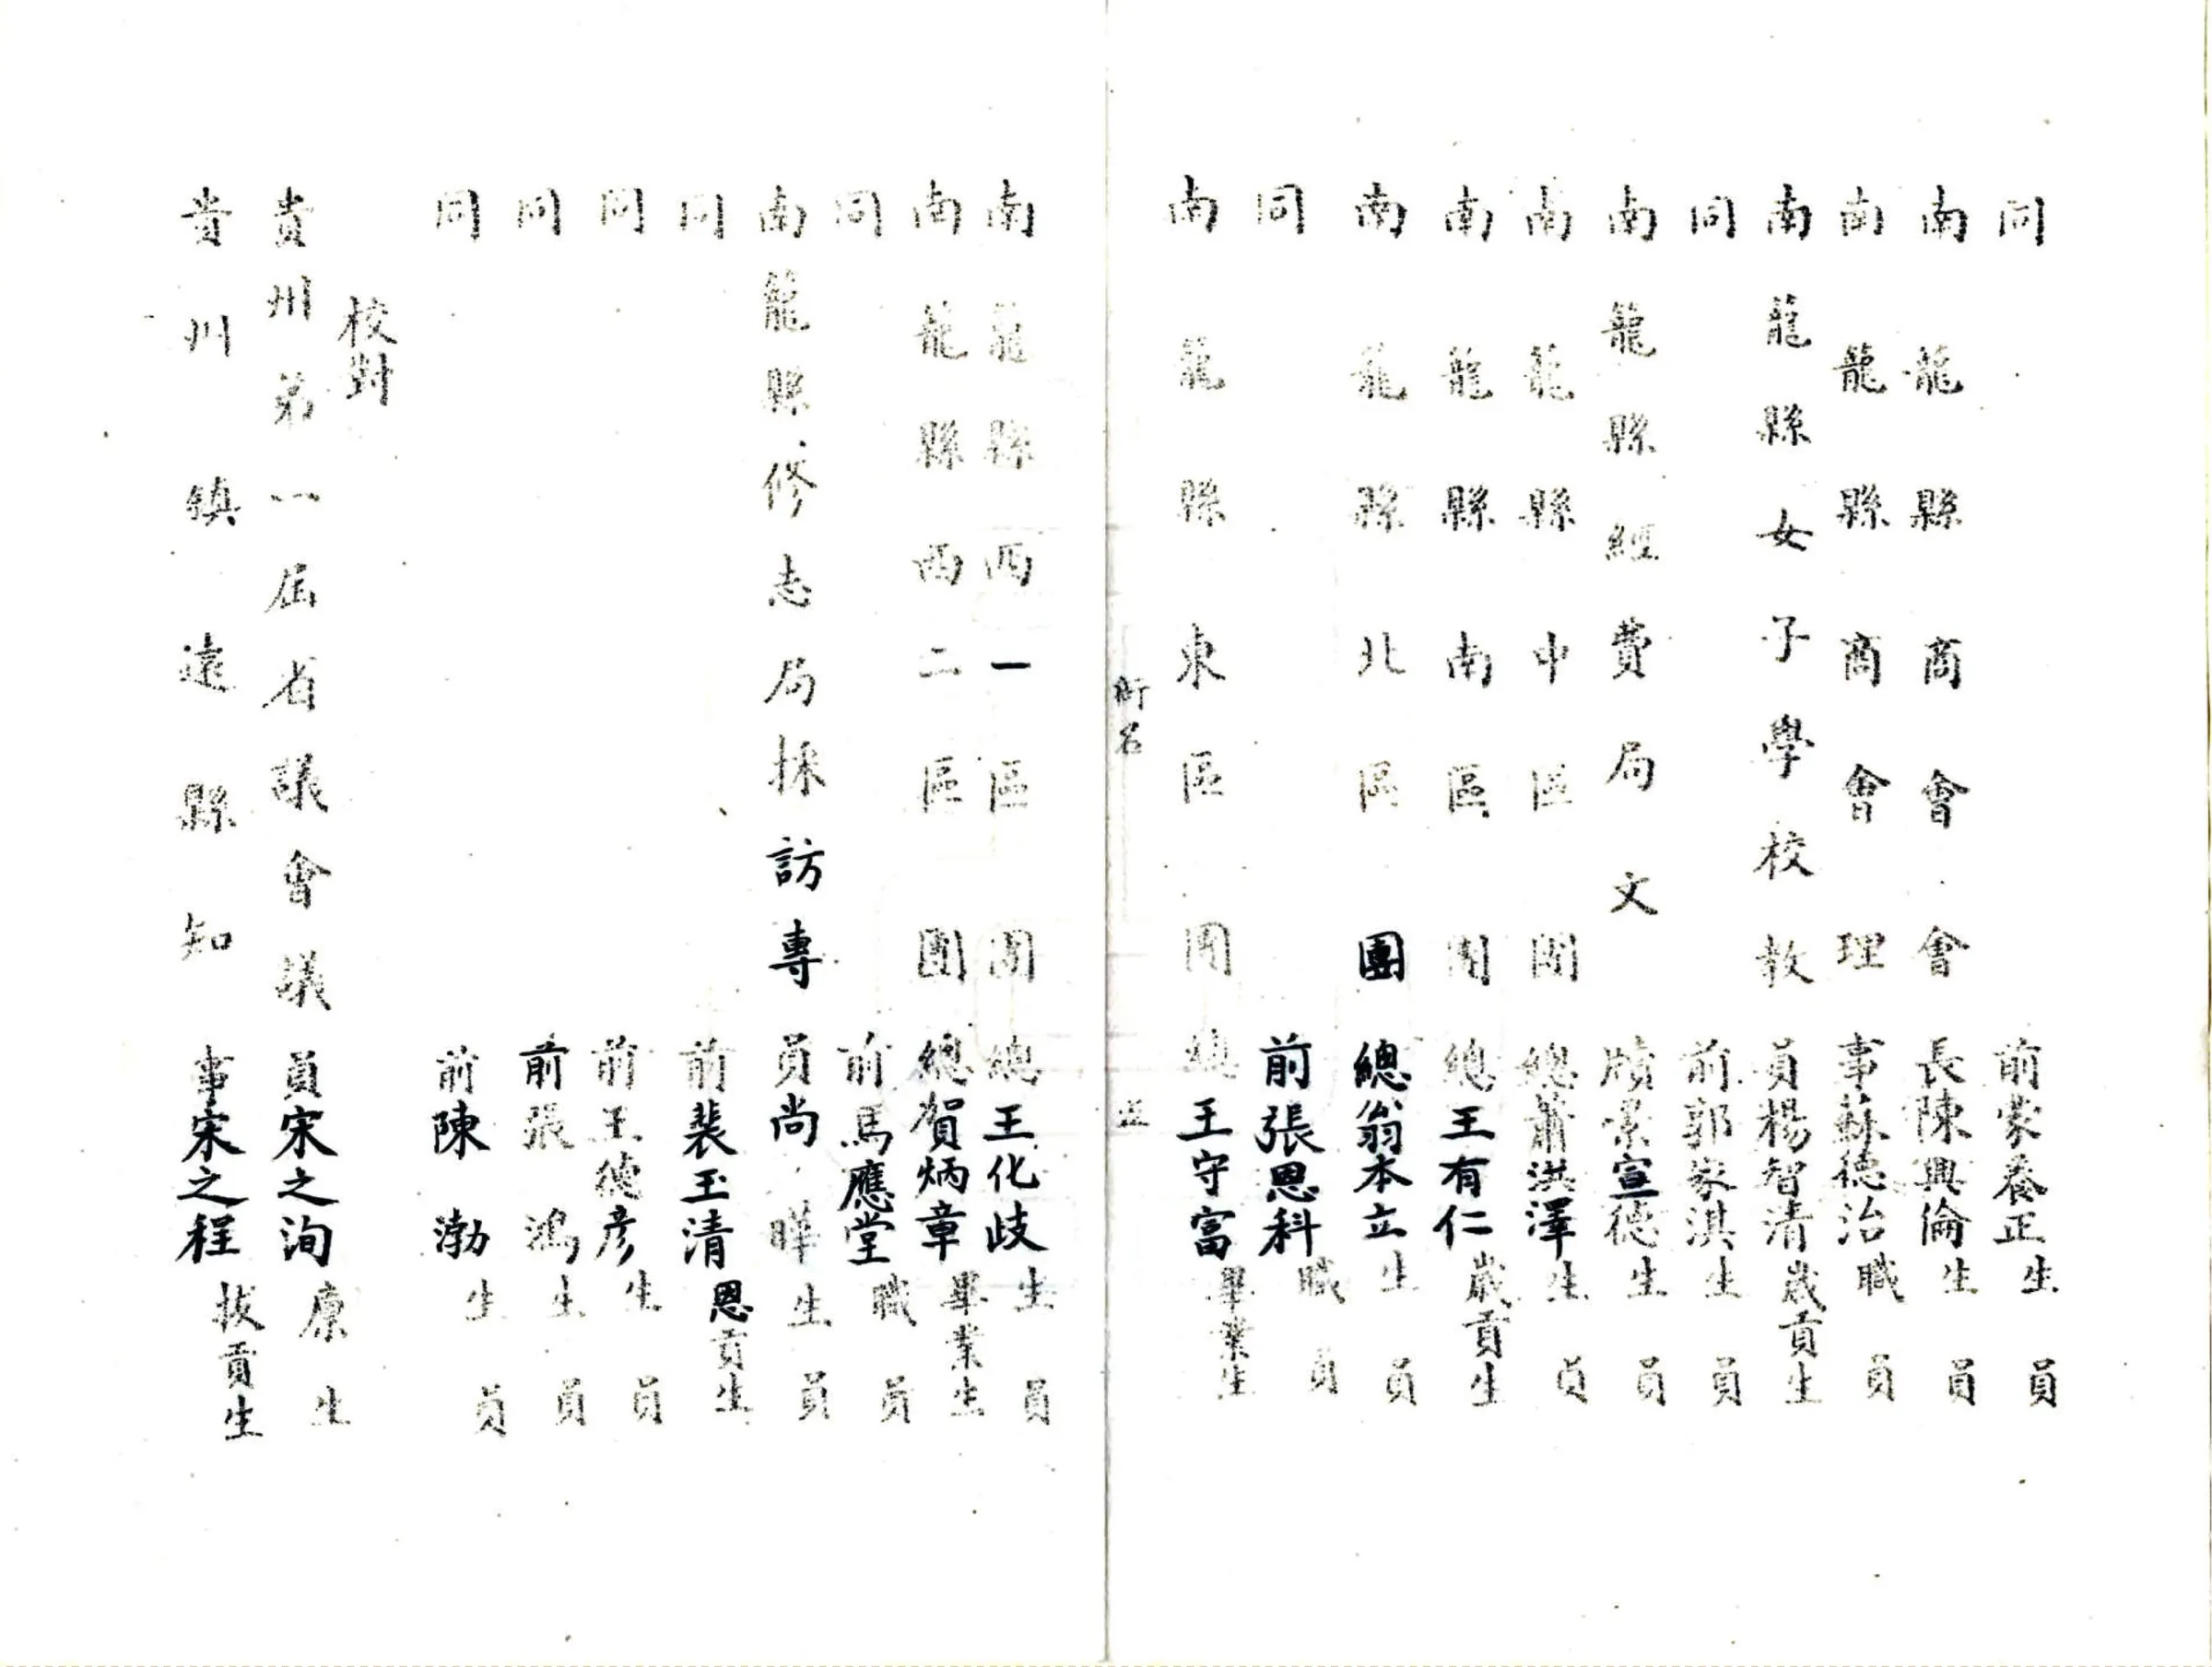 同前蒙養正生員
南籠縣商會會長陳興倫生員
南籠縣商會理事蘇德治職員
南籠縣女子學校教員楊智清歲貢生
同前郭家淇生員
南籠縣經費局文牘景宣德生員
南籠縣中區團總蕭洪澤生員
南籠縣南區團總王有仁歲貢生
南籠縣北區團總翁本立生員
同前張恩科職員
南籠縣東區團總王守富畢業生
銜名
五
南籠縣西一區團總王化歧生員
南籠縣西二區團總賀炳章畢業生
同前馬應堂職員
南籠縣修志局採訪專員尚曄生員
同前裴玉清恩貢生
同前王德彦生員
同前張鴻生員
同前陳渤生員
校對
貴州弟一屆省議會議員宋之洵廩生
貴州鎮遠縣知事宋之程拔貢生